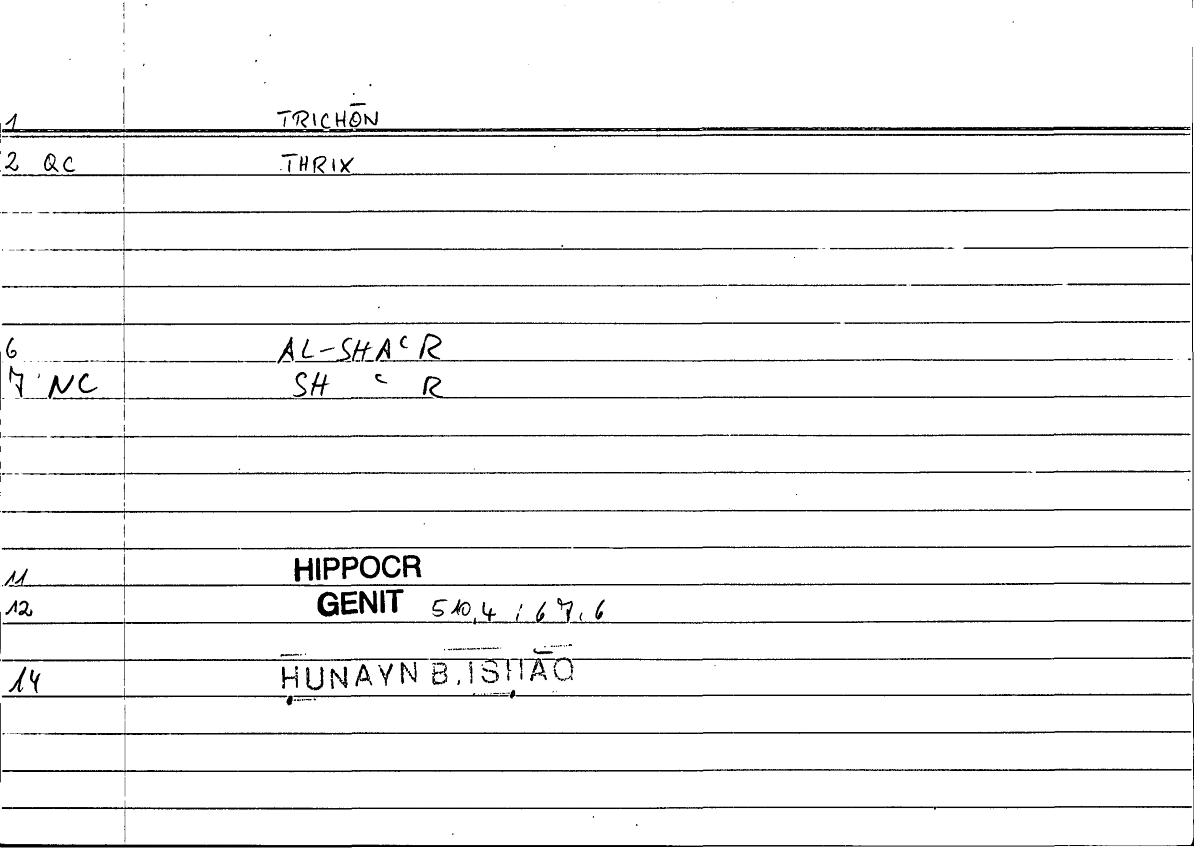 1 TRICHŌN
2 QC THRIX
6 AL-SHAᶜR
7 NC SH ᶜ R
11 HIPPOCR
12 GENIT 510,4 ; 67,6
14 ḤUNAYN B. ISḤĀQ